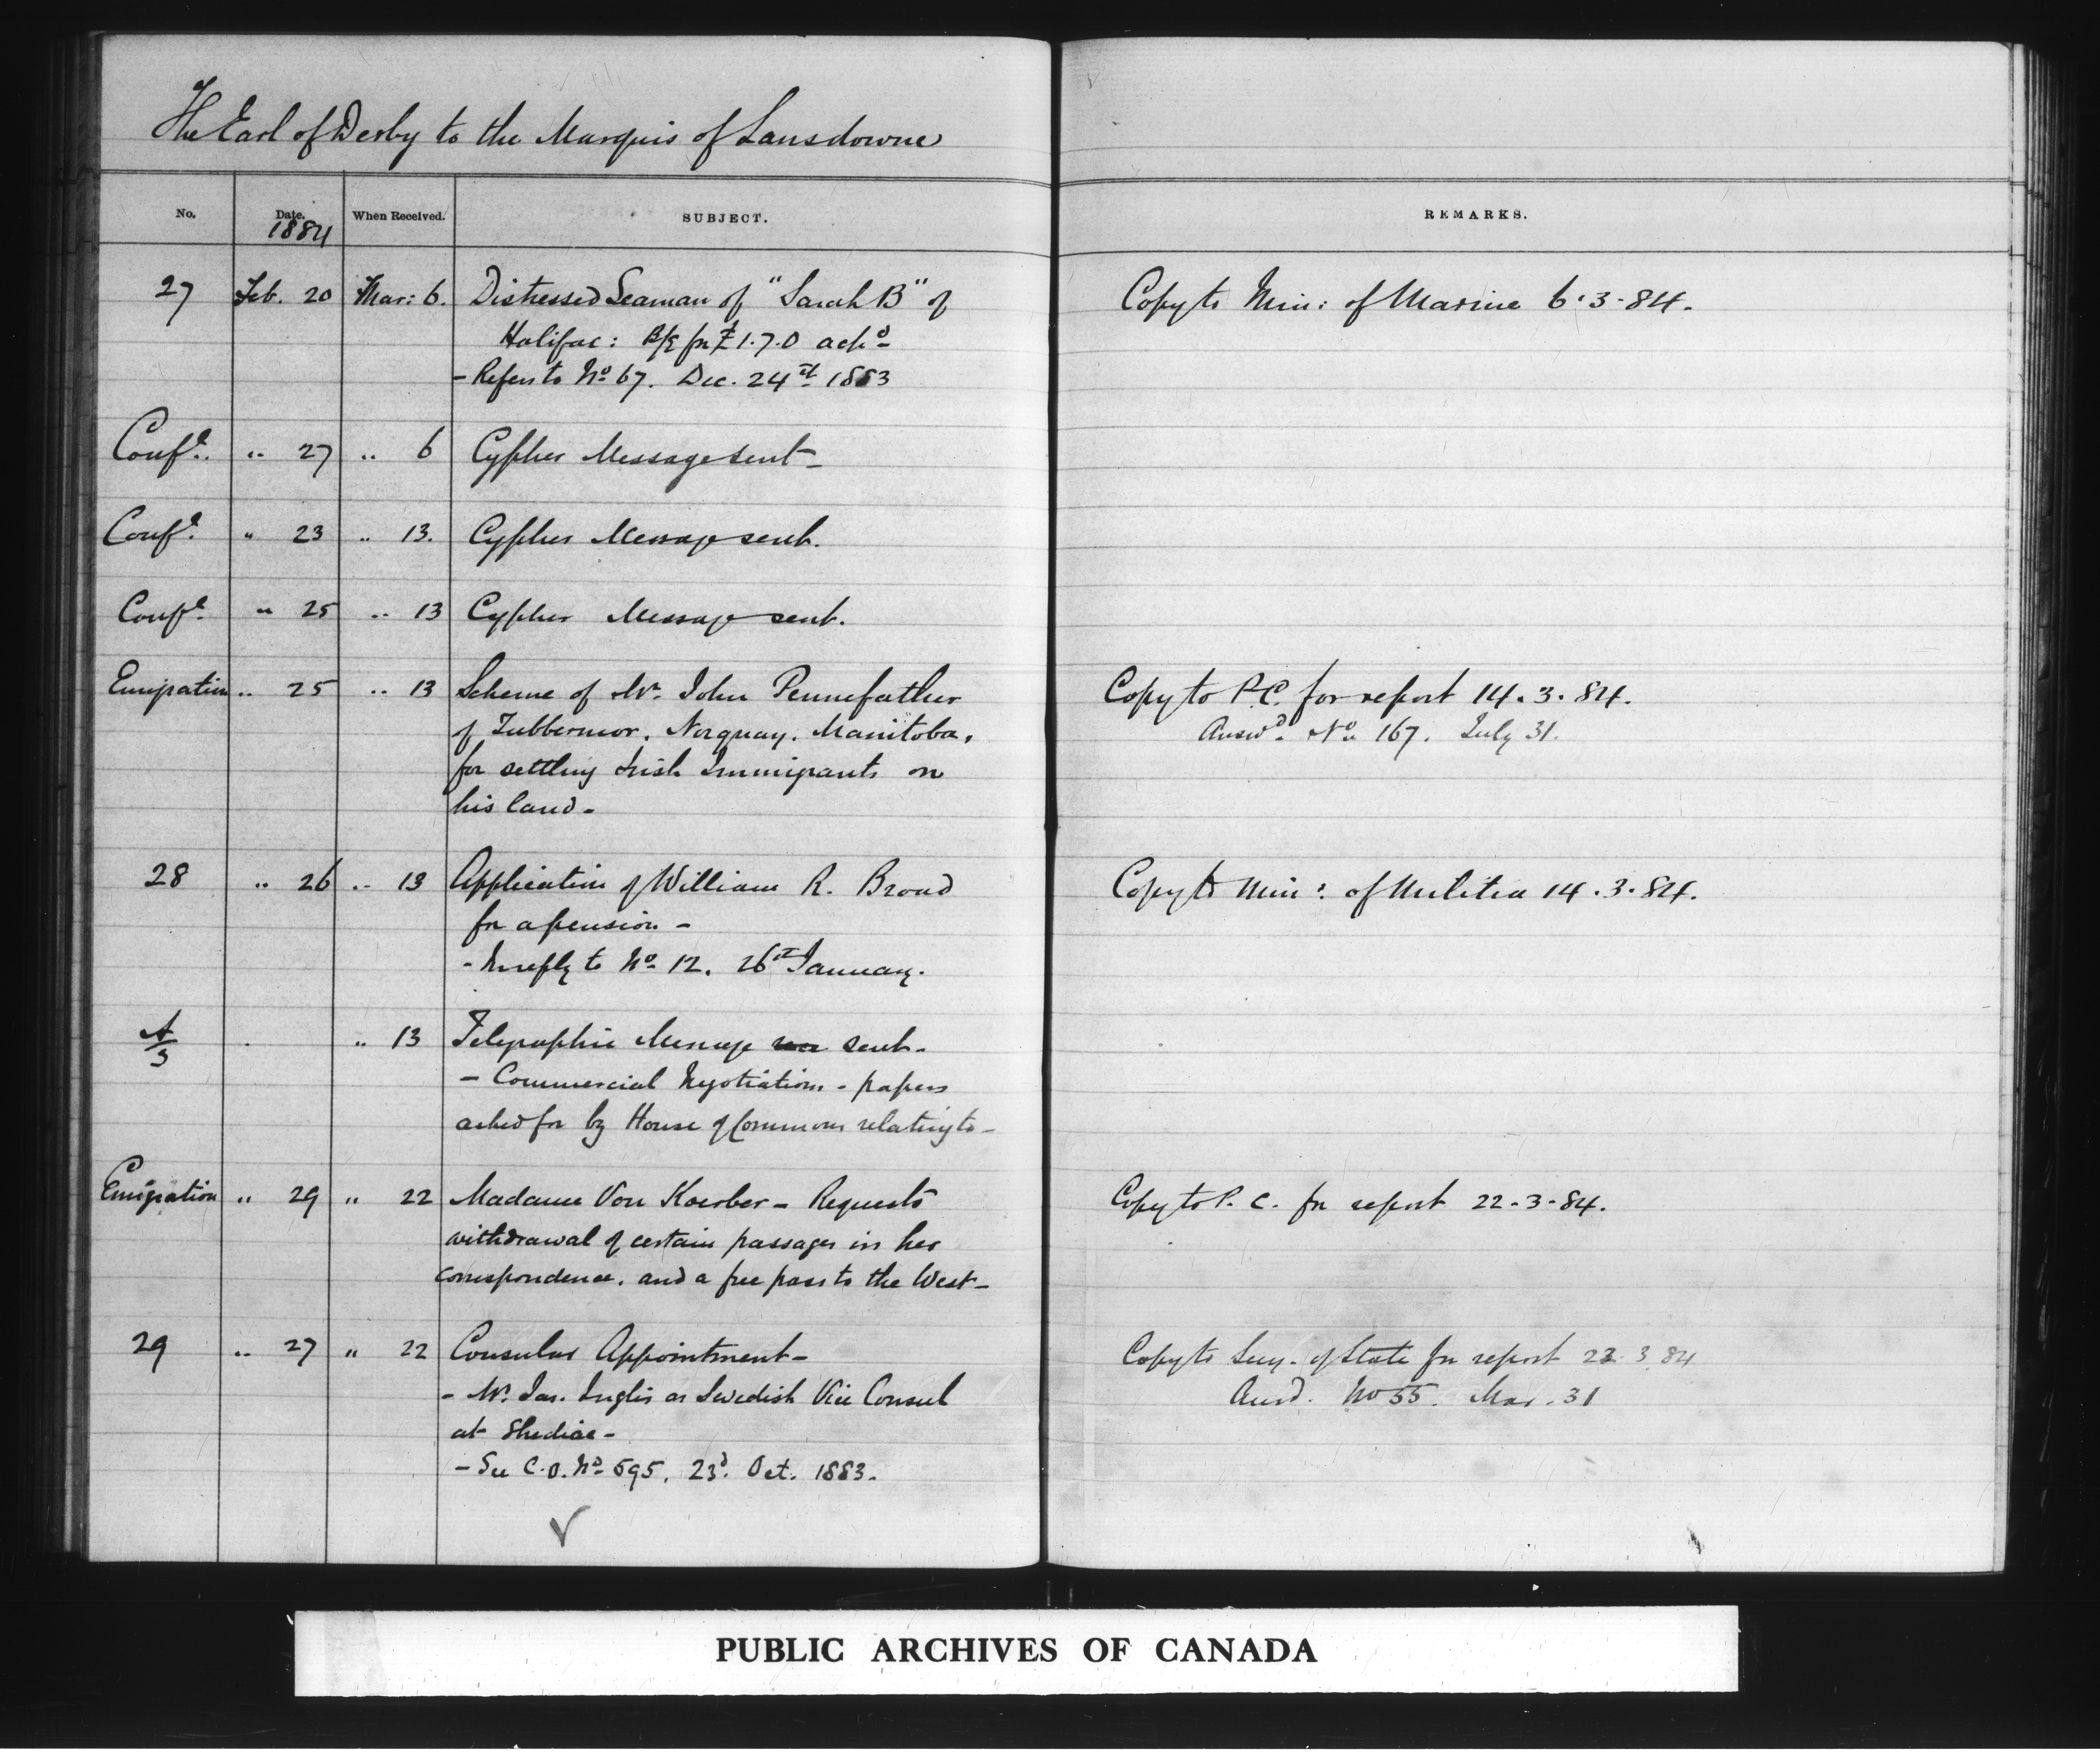 The Earl of Derby to the Marquis of Lansdowne
No. Date. When Received. SUBJECT. REMARKS.
1884
27 Feb. 20 Mar: 6. Distressed Seaman of "Sarah B" of Copy to Min: of Marine 6.3.84.
Halifax: B/E for £1.7.0 ackd
- Refers to No 67. Dec. 24th 1883
Confl. " 27 " 6 Cypher Message sent -
Confl. " 23 " 13. Cypher Message sent.
Confl. " 25 " 13 Cypher Message sent.
Emigration " 25 " 13 Scheme of Mr. John Pennefather Copy to P.C. for report 14.3.84.
of Tubbermor, Norquay, Manitoba, Answd. No 167. July 31.
for settling Irish Immigrants on
his land -
28 " 26 " 13 Application of William R. Broad Copy to Min: of Militia 14.3.84.
for a pension -
- In reply to No 12. 26th January.
A/3 " 13 Telegraphic Message sent -
- Commercial Negotiations - papers
asked for by House of Commons relating to -
Emigration " 29 " 22 Madame Von Koerber - Requests Copy to P. C. for report 22-3-84.
withdrawal of certain passages in her
correspondence, and a free pass to the West -
29 " 27 " 22 Consular Appointment - Copy to Secy. of State for report 22.3.84
- Mr. Jas. Inglis as Swedish Vice Consul Ansd. No 55. Mar. 31
at Shediac -
- See C.O. No 595, 23d. Oct. 1883.
PUBLIC ARCHIVES OF CANADA